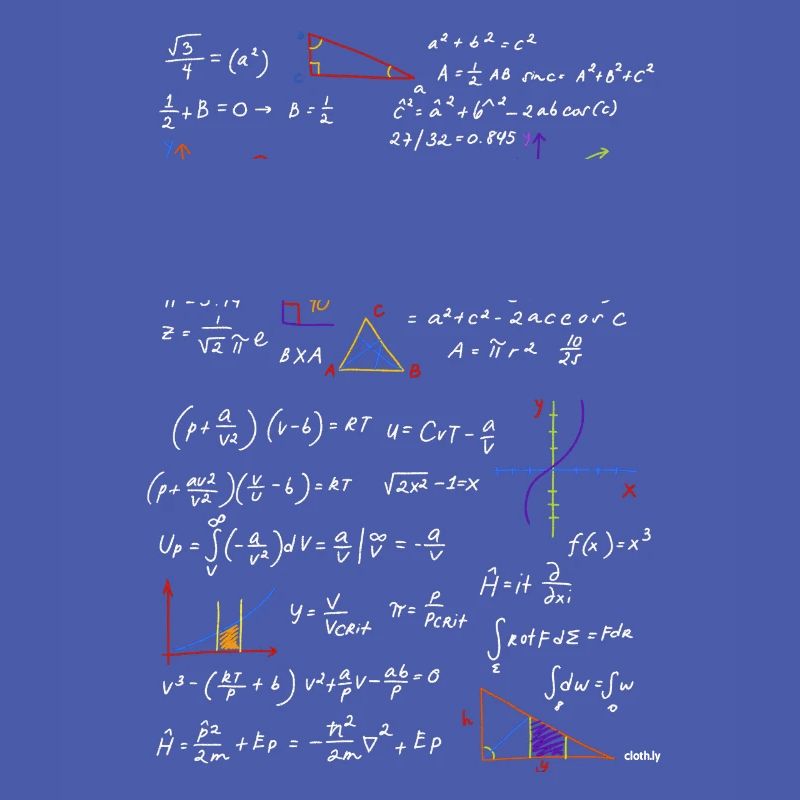 √3/4 = (a²)
a² + b² = c²
A = 1/2 AB sin c = A² + B² + C²
a
1/2 + B = 0 → B = 1/2
ĉ² = â² + b^² - 2ab cos(c)
27/32 = 0.845
y
y
C
= a² + c² - 2ac cos c
z = 1/√2 π e
B X A
A B
A = π r 2 10/25
(p + a/v2) (v - b) = RT
u = CvT - a/v
y
x
(p + av2/v2)(v/u - b) = RT
√2x² - 1 = x
Up = ∫ᵥ^∞ (-a/v2)dv = a/v |^∞ᵥ = -a/v
f(x) = x³
Ĥ = it ∂/∂xi
y = V/VCRit
π = P/PCRit
∫Σ Rot F dΣ = F dR
v³ - (RT/P + b) v² + a/P v - ab/P = 0
∫ dw = ∫ w
h
Ĥ = p̂2/2m + EP = -ħ²/2m ∇² + EP
y
cloth.ly